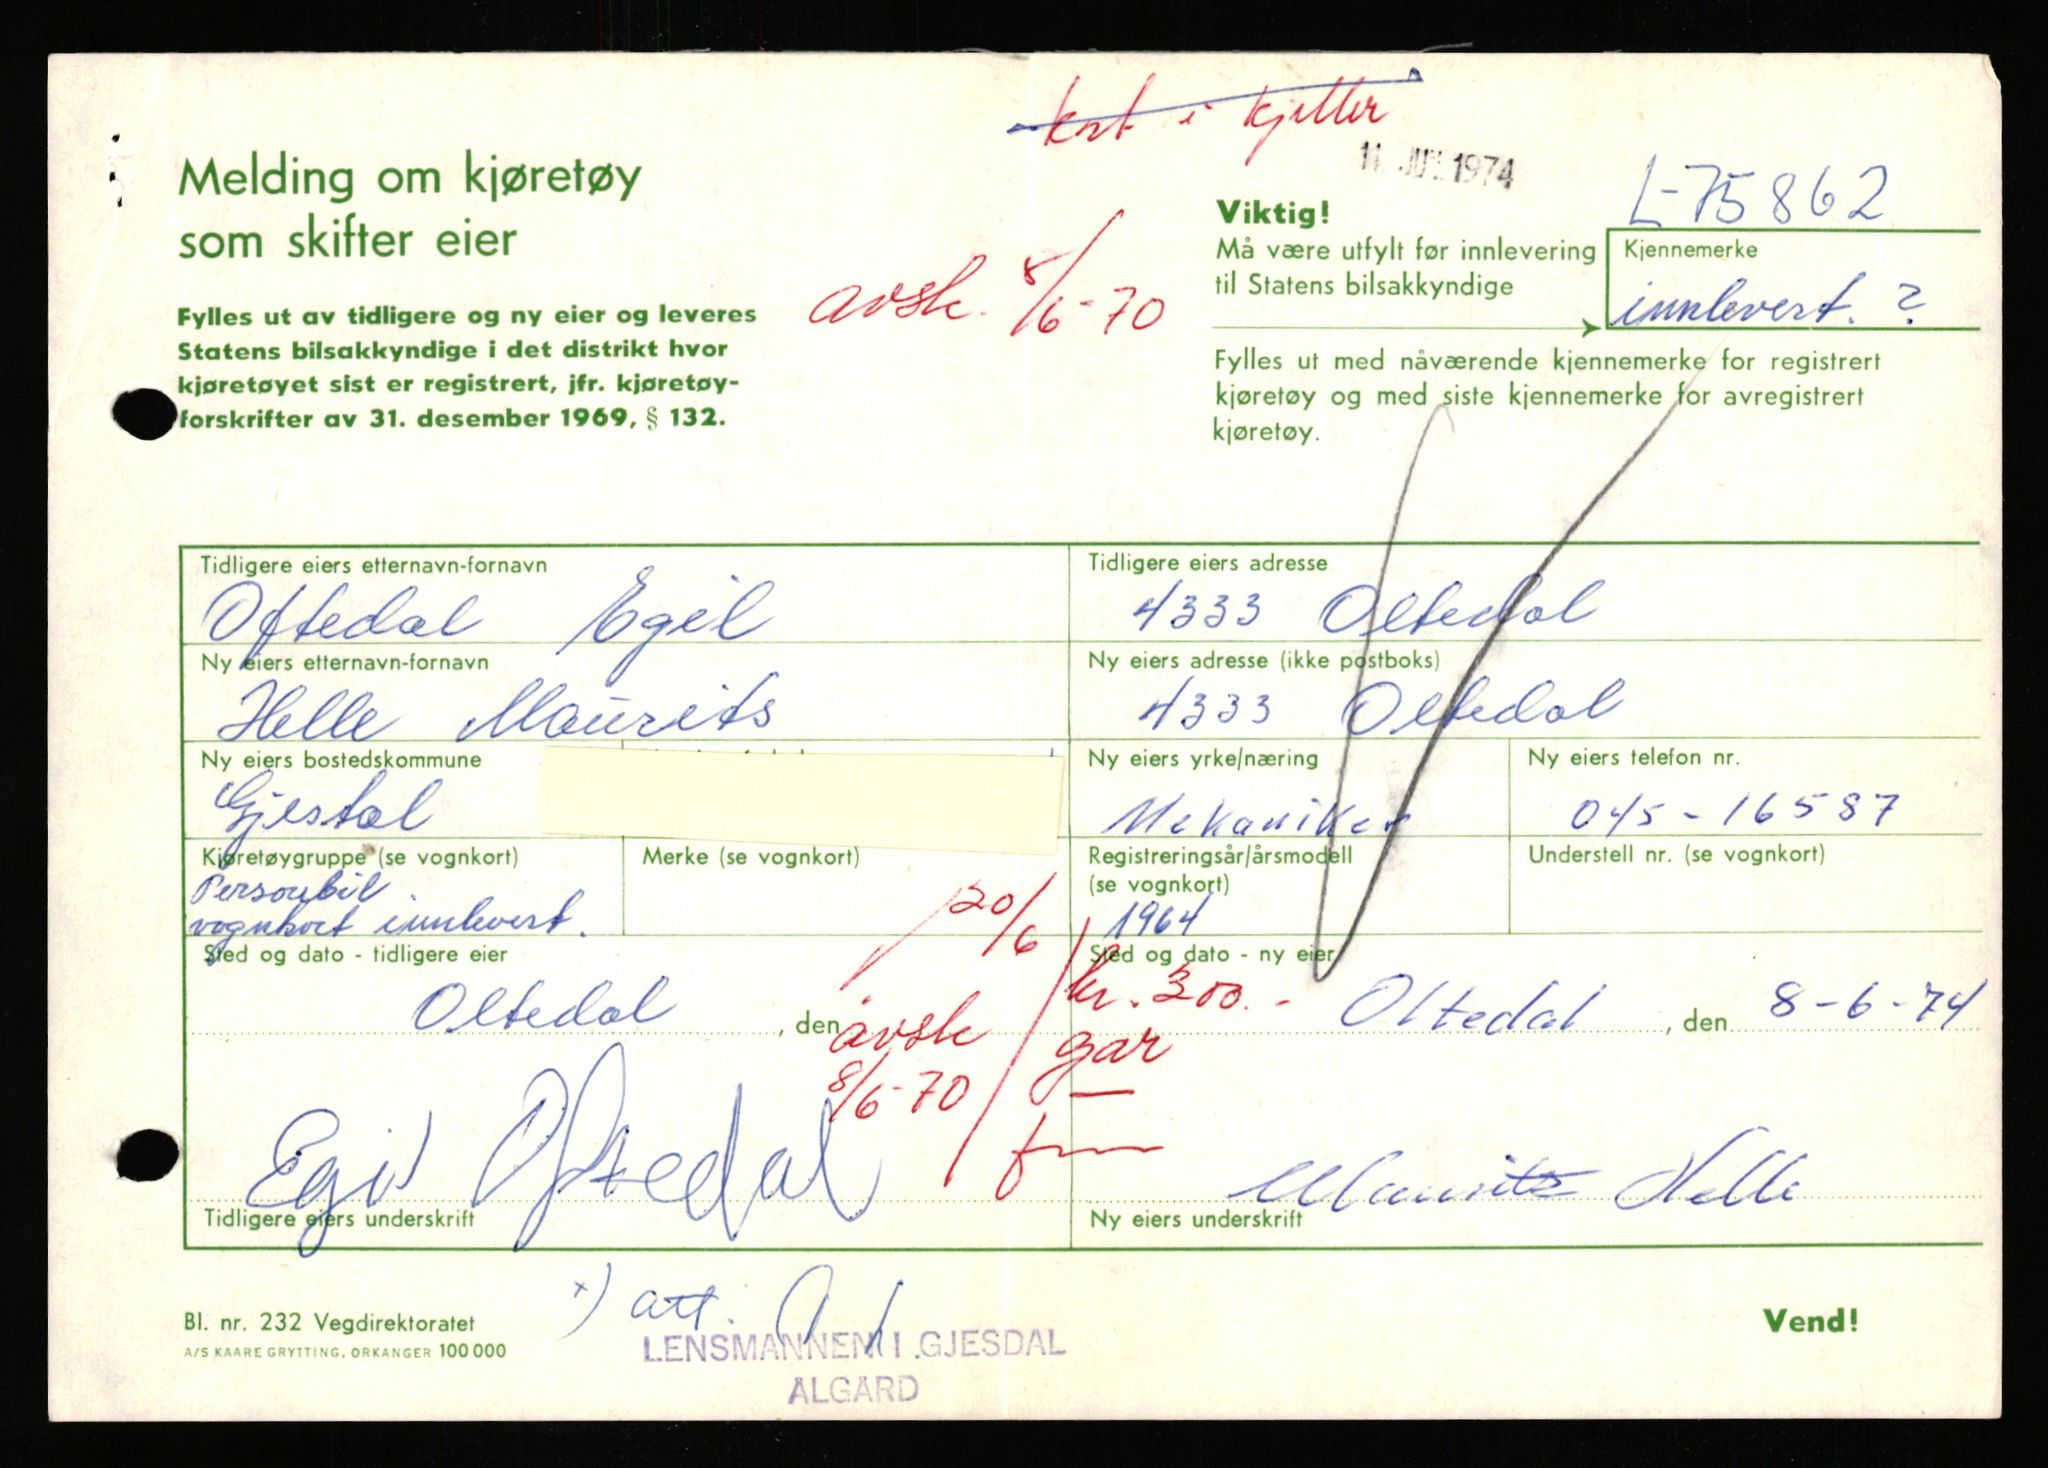 kort i kjeller
11. JUN. 1974
Melding om kjøretøy
som skifter eier
L-75862
Viktig!
Må være utfylt før innlevering
til Statens bilsakkyndige
Kjennemerke
innlevert. ?
avsk. 8/6-70
Fylles ut av tidligere og ny eier og leveres
Statens bilsakkyndige i det distrikt hvor
kjøretøyet sist er registrert, jfr. kjøretøy-
forskrifter av 31. desember 1969, § 132.
Fylles ut med nåværende kjennemerke for registrert
kjøretøy og med siste kjennemerke for avregistrert
kjøretøy.
Tidligere eiers etternavn-fornavn
Oftedal Egil
Tidligere eiers adresse
4333 Oltedal
Ny eiers etternavn-fornavn
Helle Maurits
Ny eiers adresse (ikke postboks)
4333 Oltedal
Ny eiers bostedskommune
Gjestal
Ny eiers yrke/næring
Mekaniker
Ny eiers telefon nr.
045-16587
Kjøretøygruppe (se vognkort)
Personbil
vognkort innlevert.
Merke (se vognkort)
Registreringsår/årsmodell
(se vognkort)
1964
Understell nr. (se vognkort)
20/6
Sted og dato - tidligere eier
Oltedal , den
avsk
8/6-70
kr. 300.-
gar
Sted og dato - ny eier
Oltedal , den 8-6-74
Egil Oftedal
Tidligere eiers underskrift
Maurits Helle
Ny eiers underskrift
x) att.
Bl. nr. 232 Vegdirektoratet
A/S KAARE GRYTTING, ORKANGER 100 000
LENSMANNEN I GJESDAL
ALGARD
Vend!